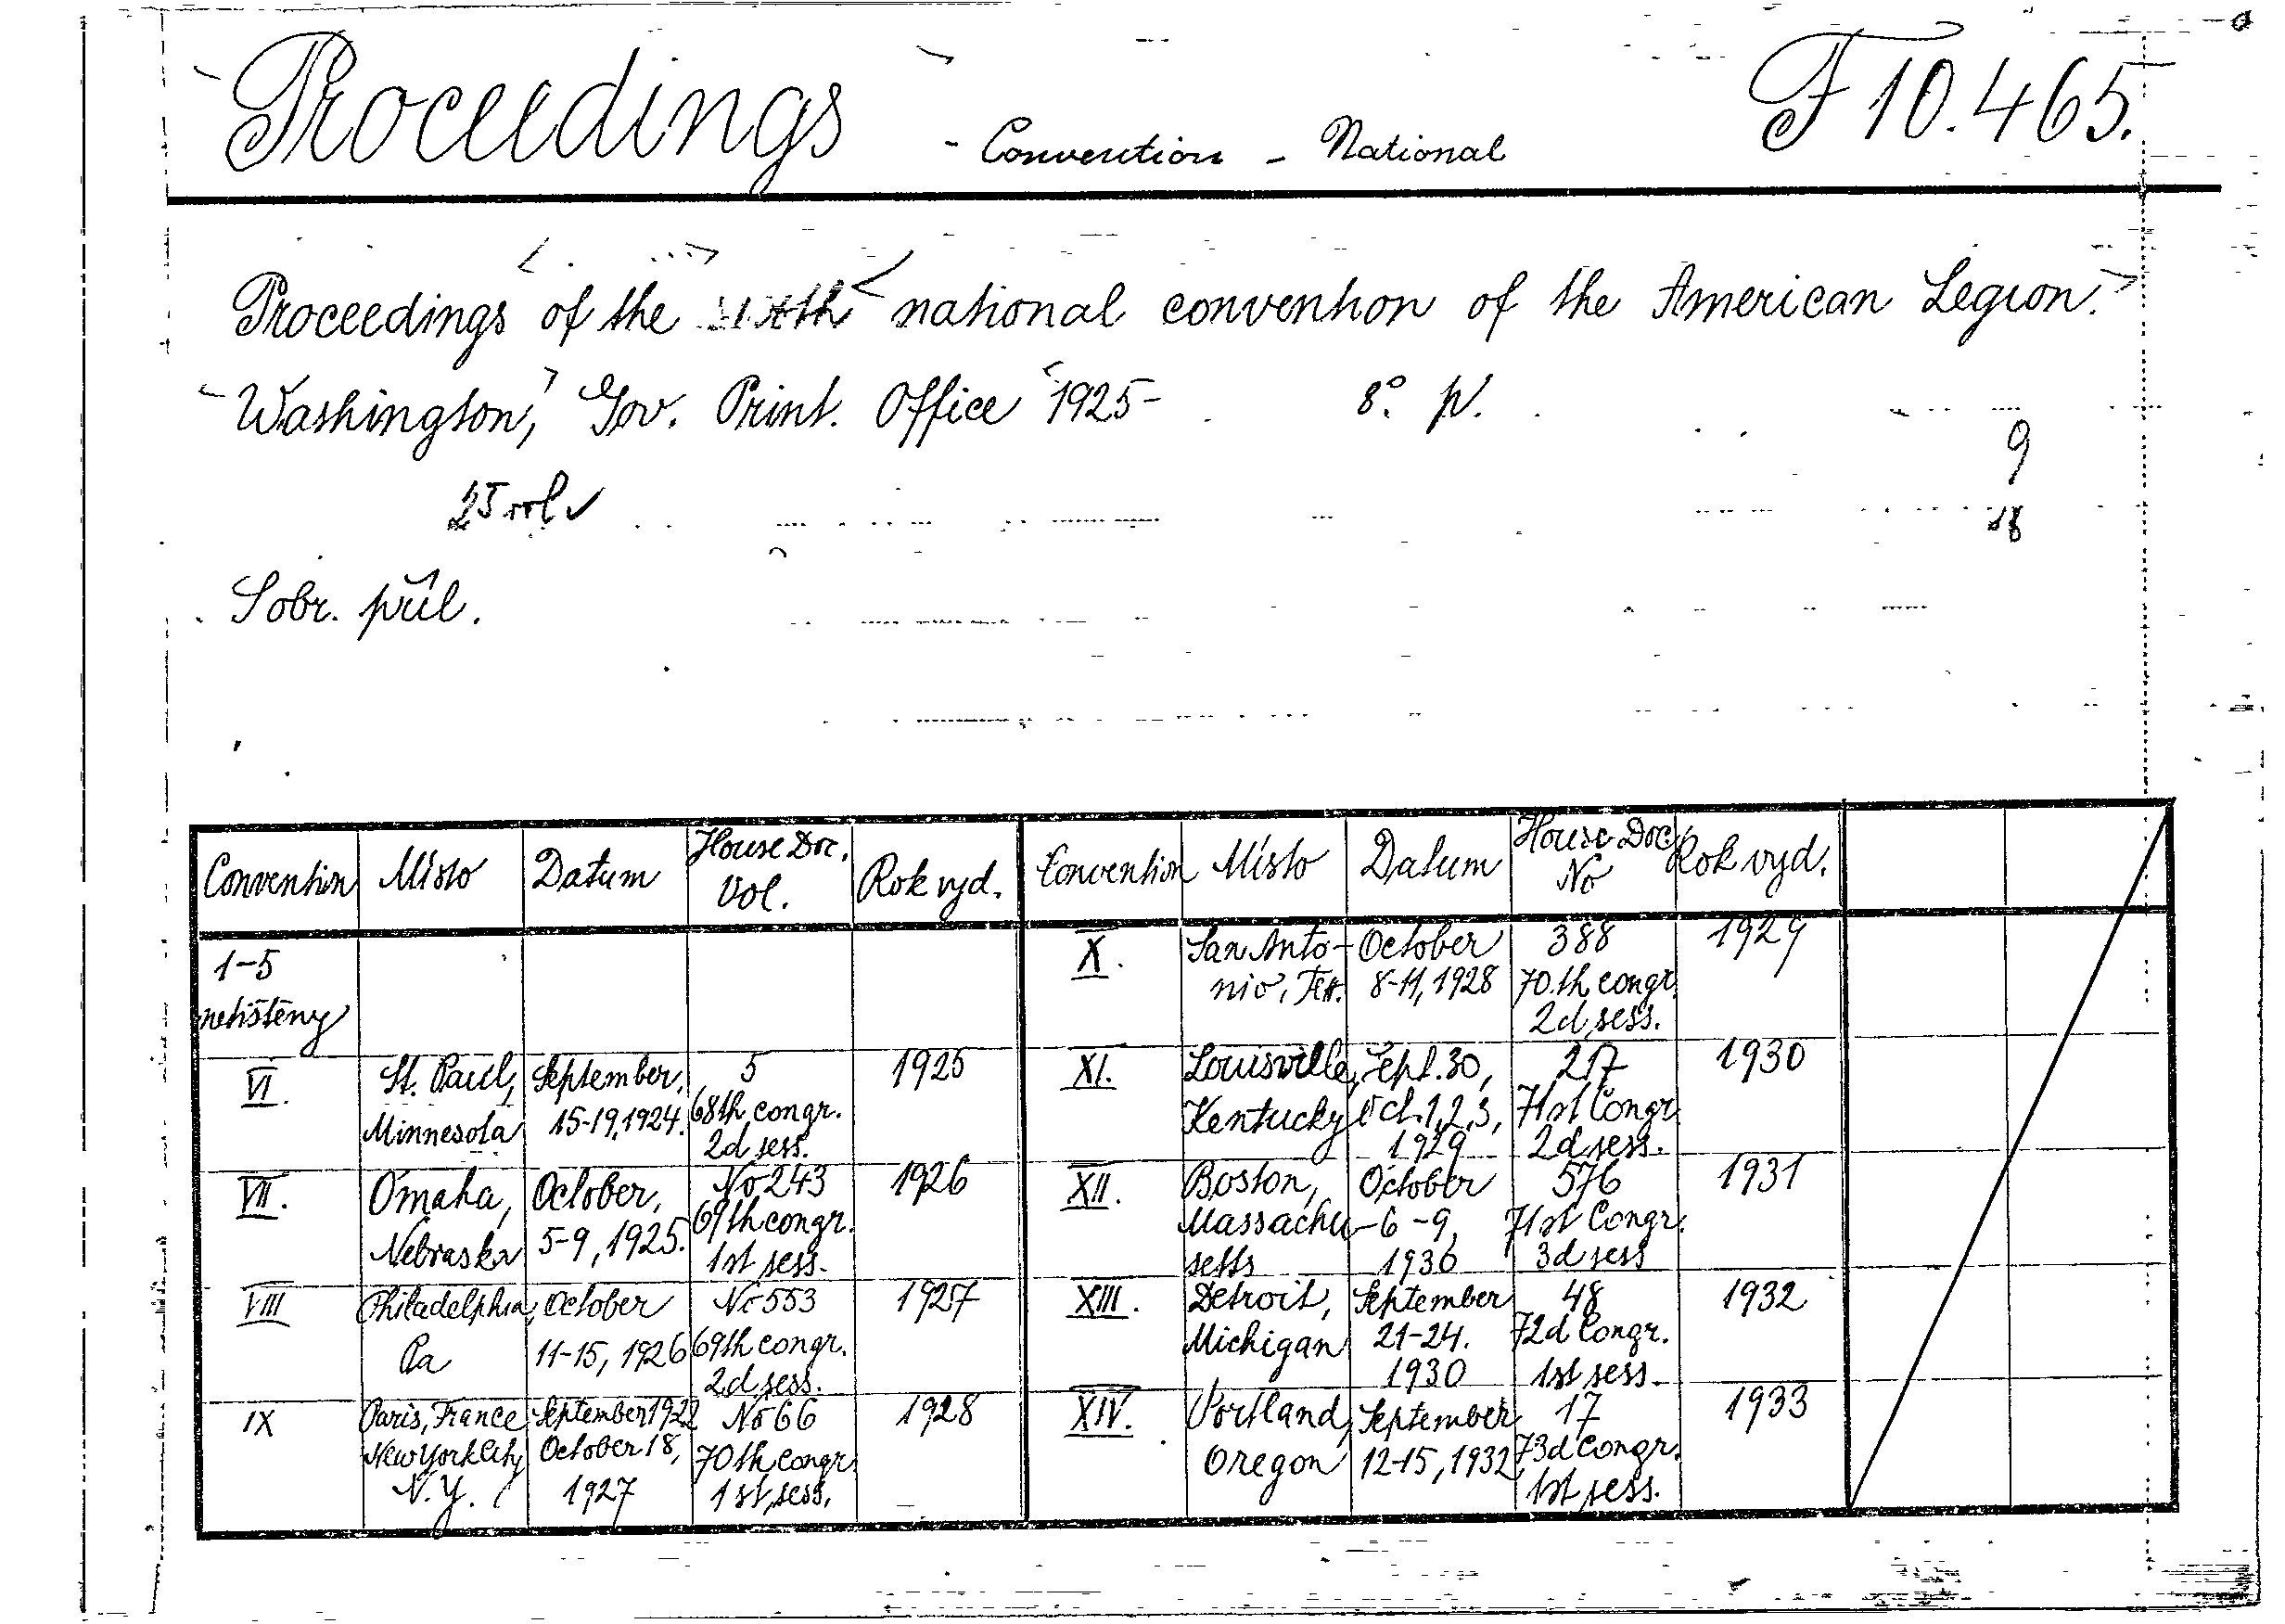 Proceedings - Convention - National F 10.465.
Proceedings of the sixth national convention of the American Legion.
Washington, Gov. Print. Office 1925- 8° p.
9
25 vol
18
Sobr. půl.
Convention Místo Datum House Doc. Vol. Rok vyd. Convention Místo Datum House Doc No Rok vyd.
1-5 netištěny
VI. St. Paul, Minnesota September, 15-19, 1924. 5 68th congr. 2d sess. 1925
VII. Omaha, Nebraska October, 5-9, 1925. No 243 69th congr. 1st sess. 1926
VIII Philadelphia, Pa October 11-15, 1926 No 553 69th congr. 2d sess. 1927
IX Paris, France New York City N.Y. September 1922 October 18, 1927 No 66 70th congr. 1st sess. 1928
X. San Antonio, Tex. October 8-11, 1928 388 70.th congr. 2d sess. 1929
XI. Louisville, Kentucky Sept. 30, Oct. 1, 2, 3, 1929 217 71st Congr. 2d sess. 1930
XII. Boston, Massachusetts October 6-9, 1930 576 71st Congr. 3d sess 1931
XIII. Detroit, Michigan September 21-24. 1930 48 72d Congr. 1st sess. 1932
XIV. Portland, Oregon September 12-15, 1932 17 73d Congr. 1st sess. 1933